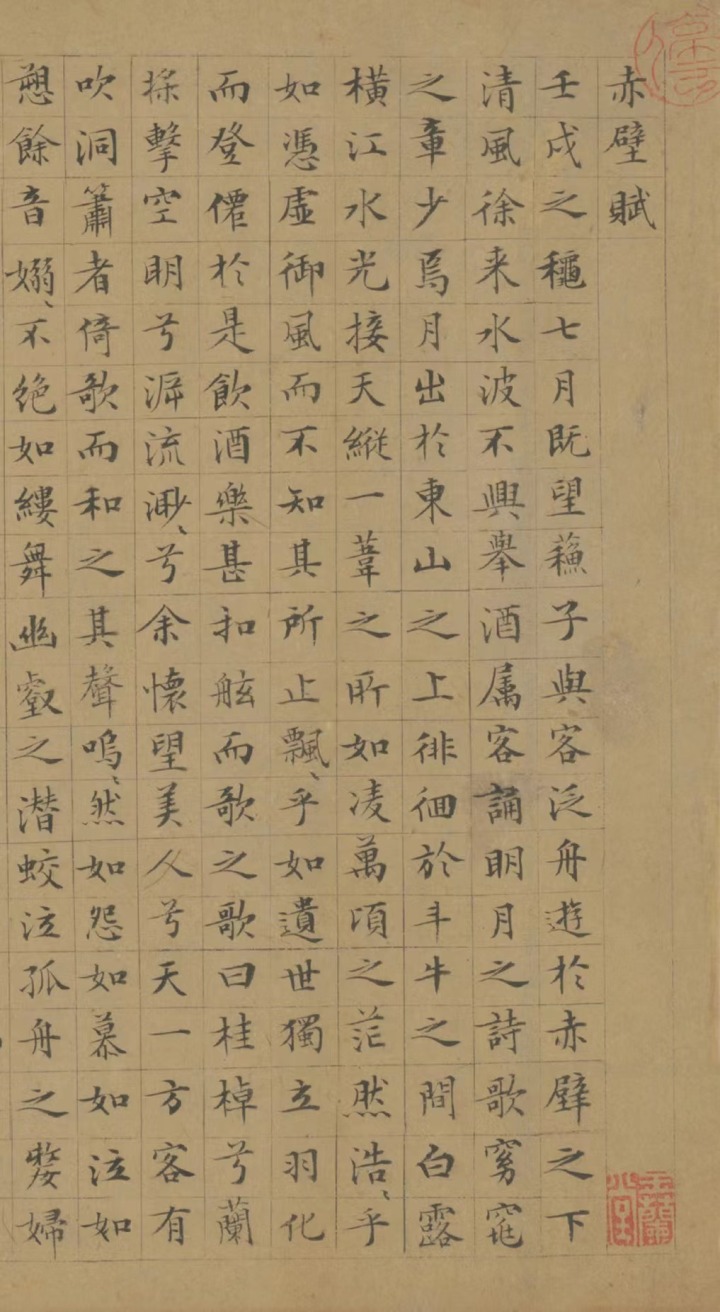 赤壁賦
壬戌之穐七月既望蘓子與客泛舟遊於赤壁之下
清風徐来水波不興舉酒属客誦明月之詩歌窈窕
之章少焉月出於東山之上徘徊於斗牛之間白露
橫江水光接天縱一葦之所如凌萬頃之茫然浩〻乎
如憑虛御風而不知其所止飄〻乎如遺世獨立羽化
而登僊於是飲酒樂甚扣舷而歌之歌曰桂棹兮蘭
槳擊空明兮泝流渺〻兮余懷望美人兮天一方客有
吹洞簫者倚歌而和之其聲嗚〻然如怨如慕如泣如
愬餘音嫋〻不絕如縷舞幽壑之潛蛟泣孤舟之嫠婦
玉蘭堂